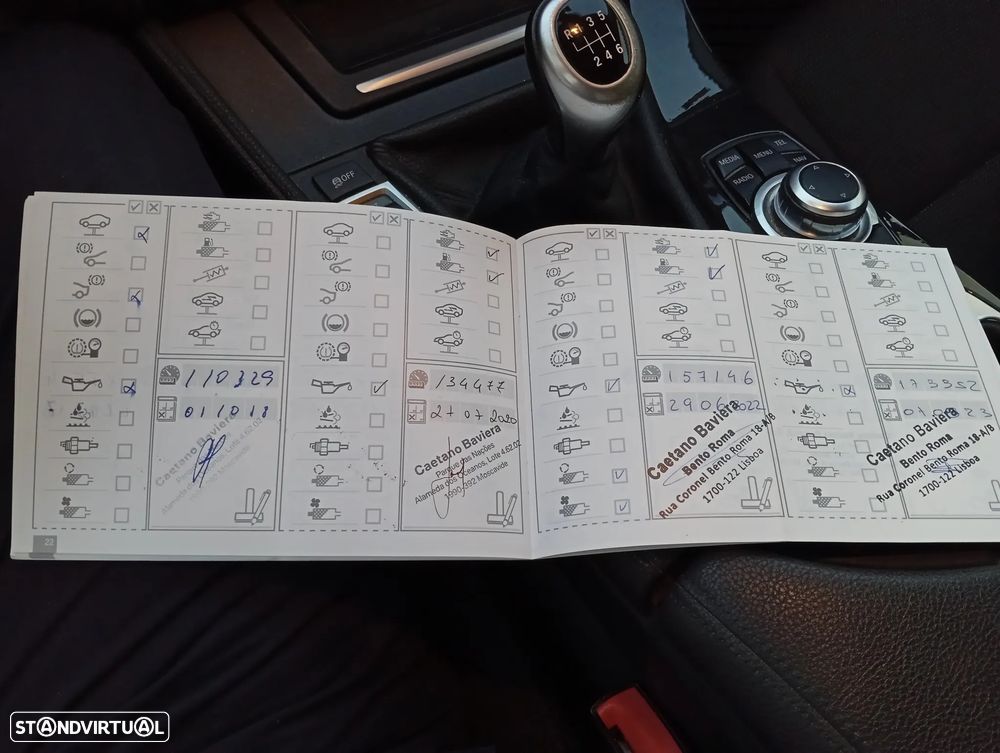 R 1 3 5
2 4 6
OFF
MEDIA
MENU
TEL
RADIO
NAV
110329
011018
Caetano Baviera
134477
27 07 2020
Caetano Baviera
Parque das Nações
Alameda dos Oceanos, Lote 4.62.02
1990-392 Moscavide
157146
Caetano Baviera
Bento Roma
Rua Coronel Bento Roma 18-A/B
1700-122 Lisboa
Caetano Baviera
Bento Roma
Rua Coronel Bento Roma 18-A/B
1700-122 Lisboa
22
STANDVIRTUAL